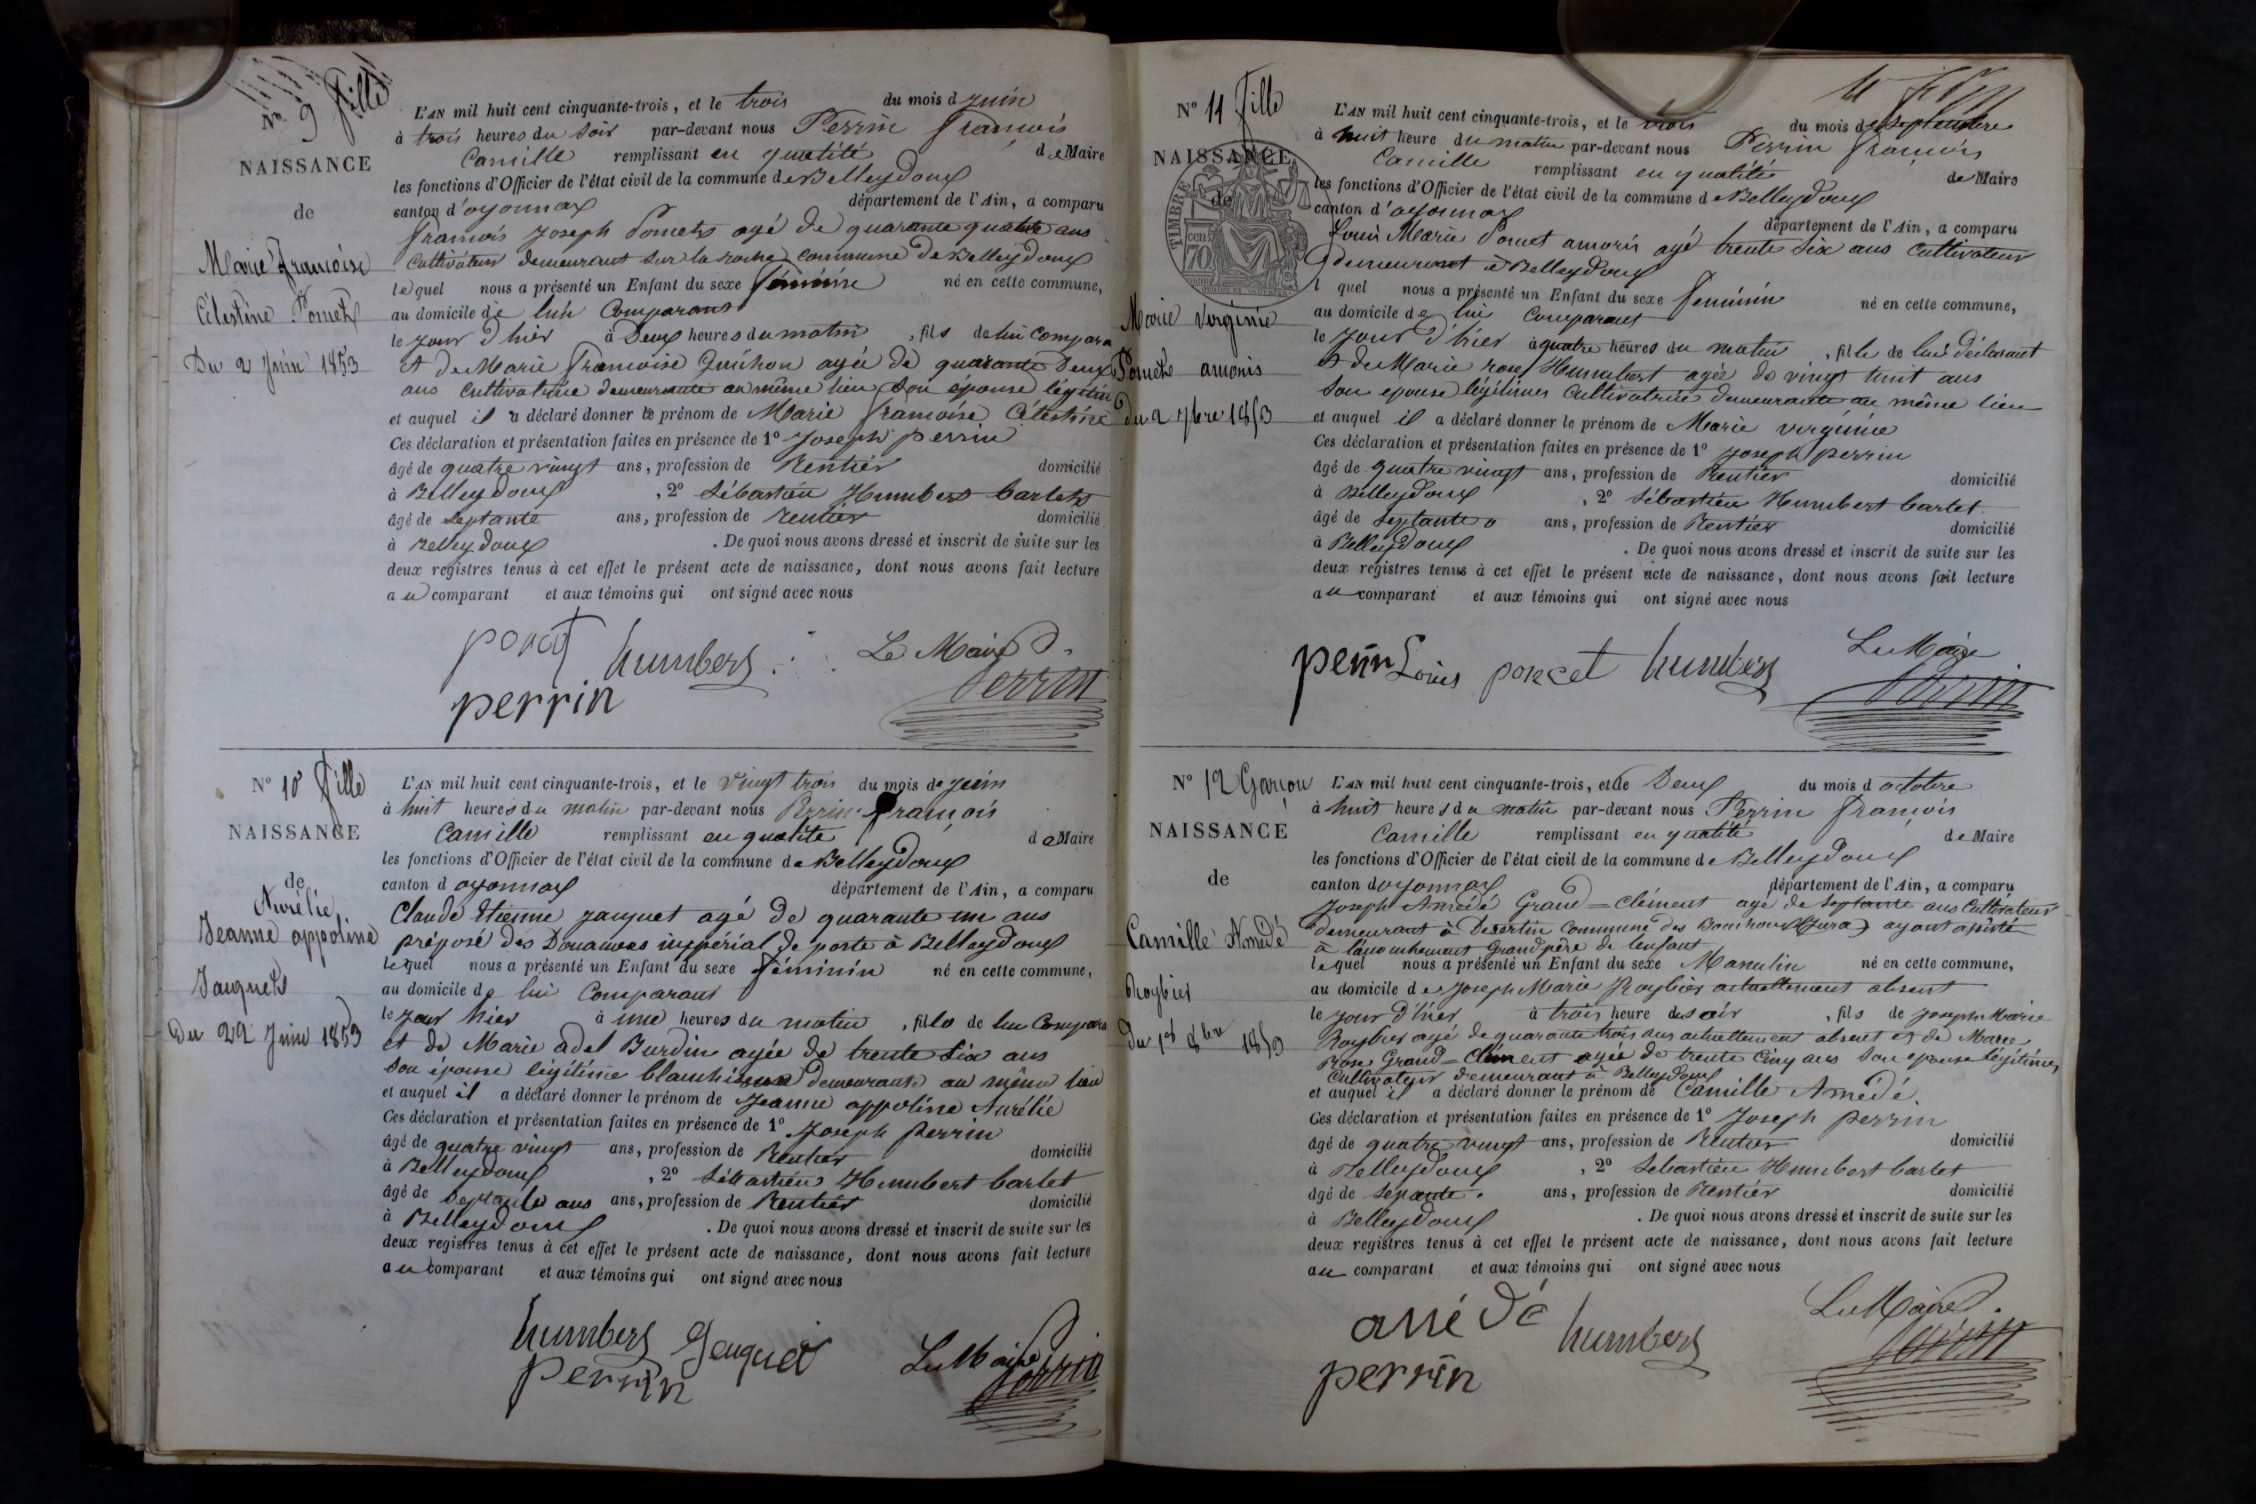 N° 9 fille
NAISSANCE
de
Marie françoise
Célestine Poncet
Du 2 Juin 1853
L'AN mil huit cent cinquante-trois, et le trois du mois d juin
à trois heures du soir par-devant nous Perrin françois
Camille remplissant en qualité de Maire
les fonctions d'Officier de l'état civil de la commune de Belleydoux
canton d'oyonnax département de l'Ain, a comparu
françois joseph Poncet agé de quarante quatre ans
Cultivateur demeurant sur la roche commune de Belleydoux
lequel nous a présenté un Enfant du sexe féminin né en cette commune,
au domicile de lui Comparant
le jour d'hier à Deux heures du matin, fils de lui Compara
et de Marie françoise agée de quarante Deux
ans Cultivatrice demeurante au même lieu son épouse légitime
et auquel il a déclaré donner le prénom de Marie françoise Célestine
Ces déclaration et présentation faites en présence de 1° joseph perrin
âgé de quatre vingt ans, profession de Rentier domicilié
à Belleydoux, 2° Sébastien Humbert barlet
âgé de septante ans, profession de rentier domicilié
à Belleydoux. De quoi nous avons dressé et inscrit de suite sur les
deux registres tenus à cet effet le présent acte de naissance, dont nous avons fait lecture
au comparant et aux témoins qui ont signé avec nous
poncet humbert Le Maire
perrin Perrin
N° 10 fille
NAISSANCE
de
Aurélie
Jeanne appoline
Jaquet
Du 22 Juin 1853
L'AN mil huit cent cinquante-trois, et le vingt trois du mois de juin
à huit heures du matin par-devant nous Perrin françois
Camille remplissant en qualité de Maire
les fonctions d'Officier de l'état civil de la commune de Belleydoux
canton d oyonnax département de l'Ain, a comparu
Claude Etienne jaquet agé de quarante un ans
préposé des Douannes impérial de poste à Belleydoux
lequel nous a présenté un Enfant du sexe féminin né en cette commune,
au domicile de lui Comparant
le jour hier à une heures du matin, fils de lui Compara
et de Marie adel Burdin agée de trente six ans
son épouse légitime demeurante au même lieu
et auquel il a déclaré donner le prénom de Jeanne appoline Aurélie
Ces déclaration et présentation faites en présence de 1° Joseph perrin
âgé de quatre vingt ans, profession de Rentier domicilié
à Belleydoux, 2° Sébastien Humbert barlet
âgé de septante ans ans, profession de Rentier domicilié
à Belleydoux. De quoi nous avons dressé et inscrit de suite sur les
deux registres tenus à cet effet le présent acte de naissance, dont nous avons fait lecture
au comparant et aux témoins qui ont signé avec nous
humbert Jaquet Le Maire
perrin Perrin
N° 11 fille
NAISSANCE
de
TIMBRE
70
Marie virginie
Poncet amoris
du 2 7bre 1853
L'AN mil huit cent cinquante-trois, et le trois du mois de septembre
à huit heure du matin par-devant nous Perrin françois
Camille remplissant en qualité de Maire
les fonctions d'Officier de l'état civil de la commune de Belleydoux
canton d'oyonnax département de l'Ain, a comparu
Louis Marie Poncet amoris agé trente six ans Cultivateur
demeurant à Belleydoux
l quel nous a présenté un Enfant du sexe féminin né en cette commune,
au domicile de lui Comparant
le jour d'hier à quatre heures du matin, fille de lui déclarant
et de Marie rose Humbert agée de vingt huit ans
son epouse légitimes Cultivatrice demeurante au même lieu
et auquel il a déclaré donner le prénom de Marie virginie
Ces déclaration et présentation faites en présence de 1° joseph perrin
âgé de quatre vingt ans, profession de Rentier domicilié
à Belleydoux, 2° Sébastien Humbert barlet
âgé de septante ans, profession de Rentier domicilié
à Belleydoux. De quoi nous avons dressé et inscrit de suite sur les
deux registres tenus à cet effet le présent acte de naissance, dont nous avons fait lecture
au comparant et aux témoins qui ont signé avec nous
perrin Louis poncet humbert Le Maire
Perrin
N° 12 Garçon
NAISSANCE
de
Camille Amédé
Roybier
du 1er 8bre 1853
L'AN mil huit cent cinquante-trois, et le Deux du mois d octobre
à huit heures du matin par-devant nous Perrin françois
Camille remplissant en qualité de Maire
les fonctions d'Officier de l'état civil de la commune de Belleydoux
canton d'oyonnax département de l'Ain, a comparu
Joseph Amédé Grand=Clément agé de septante ans Cultivateur
demeurant à Desertin Commune des Bouchoux (Jura) ayant assisté
à l'accouchement Grand père de l'enfant
lequel nous a présenté un Enfant du sexe Masculin né en cette commune,
au domicile de Joseph Marie Roybier actuellement absent
le jour d'hier à trois heure du soir, fils de joseph Marie
Roybier agé de quarante trois ans actuellement absent et de Marie
Rose Grand=Clément agée de trente Cinq ans son epouse légitimes
Cultivateur demeurant à Belleydoux
et auquel il a déclaré donner le prénom de Camille Amédé.
Ces déclaration et présentation faites en présence de 1° Joseph perrin
âgé de quatre vingt ans, profession de Rentier domicilié
à Belleydoux, 2° Sébastien Humbert barlet
âgé de sepante. ans, profession de Rentier domicilié
à Belleydoux. De quoi nous avons dressé et inscrit de suite sur les
deux registres tenus à cet effet le présent acte de naissance, dont nous avons fait lecture
au comparant et aux témoins qui ont signé avec nous
amédé humbert Le Maire
perrin Perrin